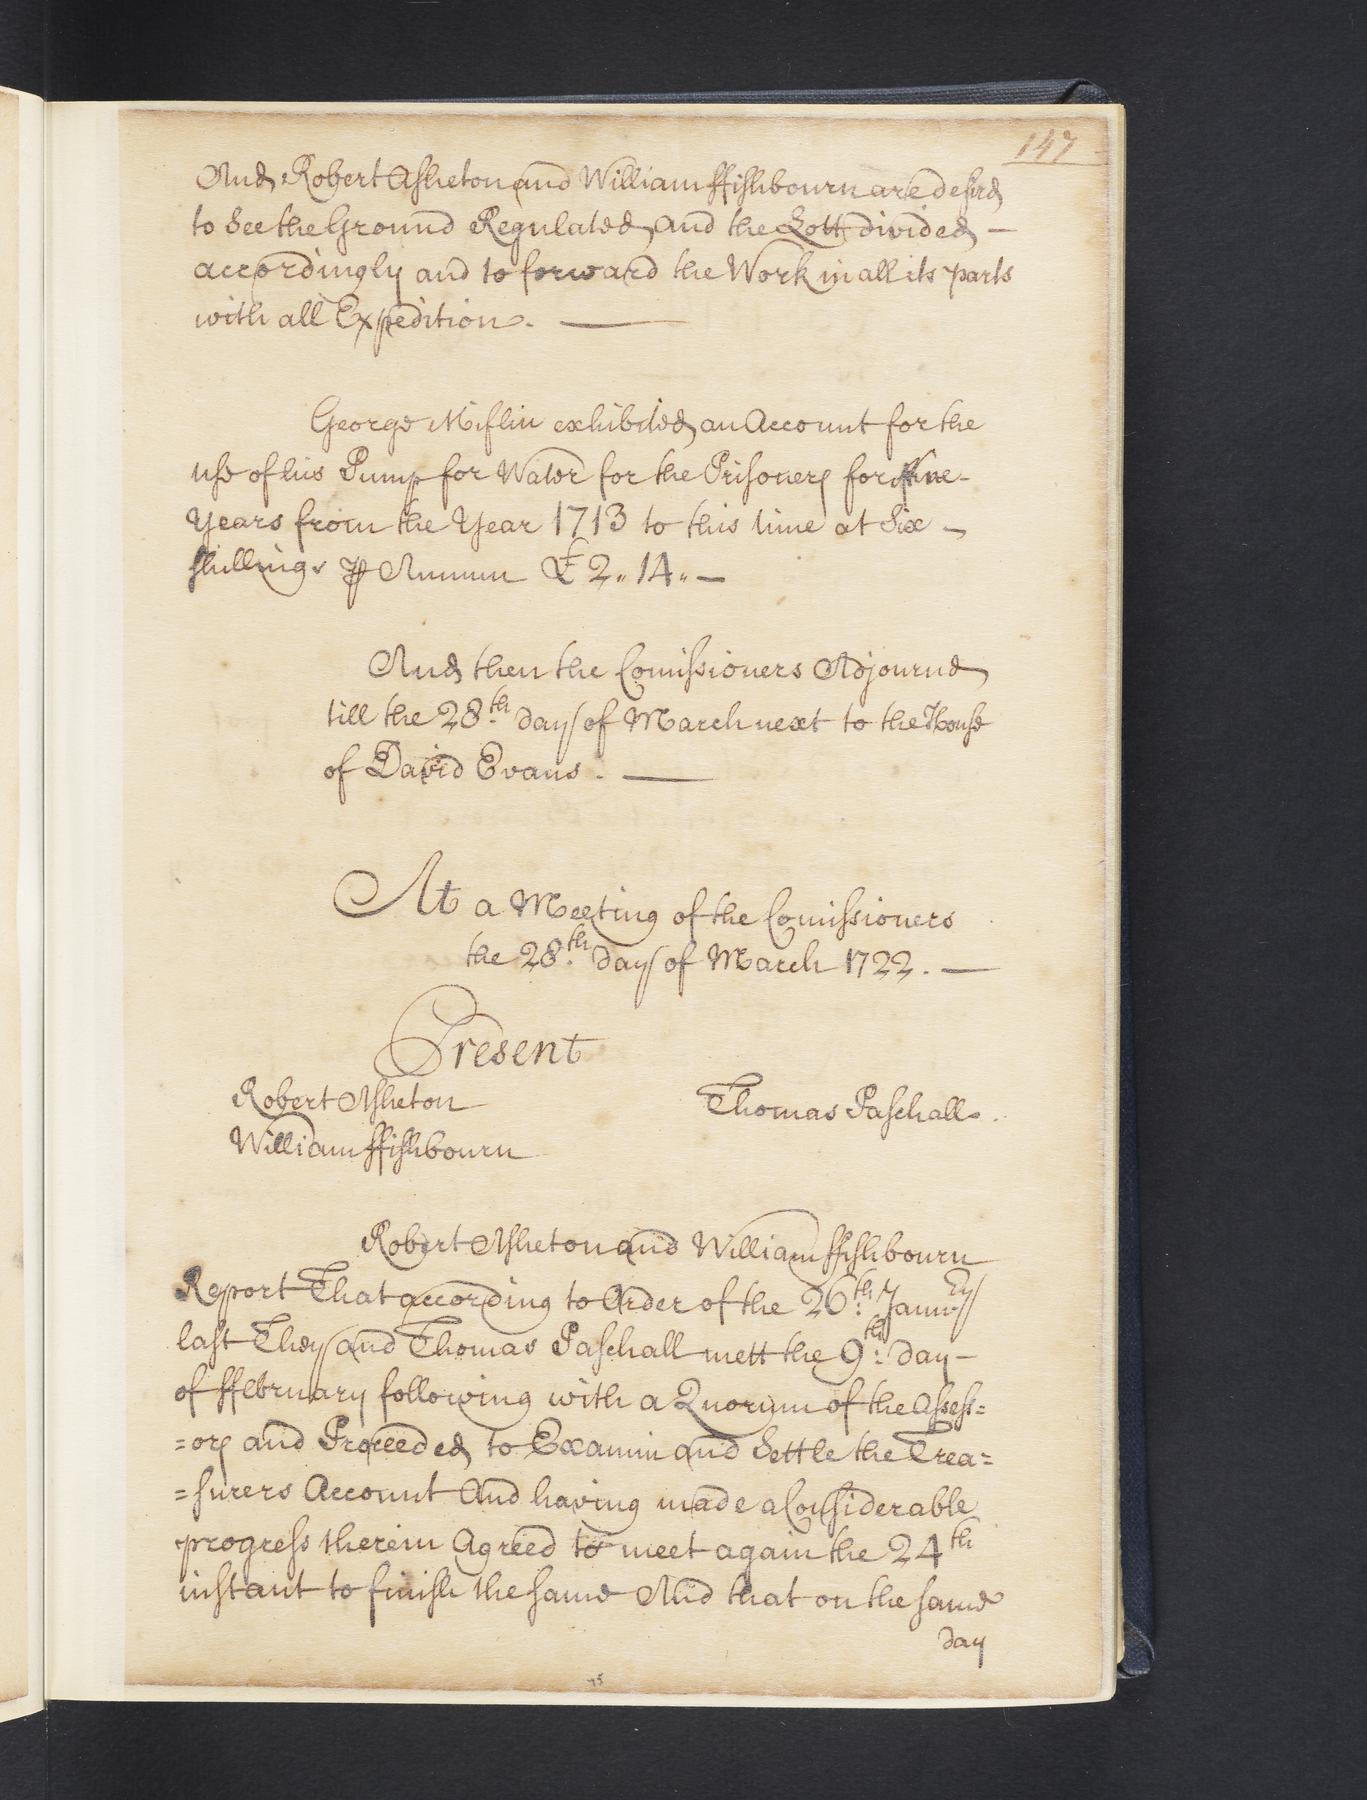 147
And Robert Asheton and William ffishbourn are desir'd
to See the Ground Regulated and the Lott divided —
accordingly and to forward the Work in all its parts
with all Expedition. —
George Miflin exhibited an Account for the
use of his Pump for Water for the Prisoners for Nine-
Years from the Year 1713 to this time at Six —
shillings ⅌ Annum £2„14„—
And then the Comissioners Adjournd
till the 28.th day of March next to the House
of David Evans. —
At a Meeting of the Comissioners
the 28.th day of March 1722. —
Present
Robert Asheton Thomas Paschall.
William ffishbourn
Robert Asheton and William ffishbourn
Report That according to Order of the 26.th Janu.ry
last They and Thomas Paschall mett the 9.th day —
of ffebruary following with a Quorum of the Assess=
=ors and Proceeded to Examin and Settle the Trea=
=surers Account And having made a Considerable
progress therein Agreed to meet again the 24th
instant to finish the same And that on the same
day
75